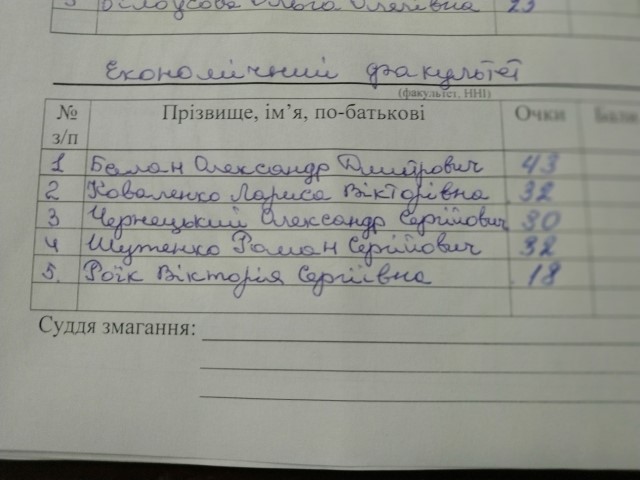 Білоусова Ольга Олегівна 23
Економічний факультет
(факультет, ННІ)
№ з/п Прізвище, ім'я, по-батькові Очки Бали
1 Балан Олександр Дмитрович 43
2 Коваленко Лариса Вікторівна 32
3 Чернецький Олександр Сергійович 30
4 Шутенко Роман Сергійович 32
5. Роїк Вікторія Сергіївна 18
Суддя змагання: